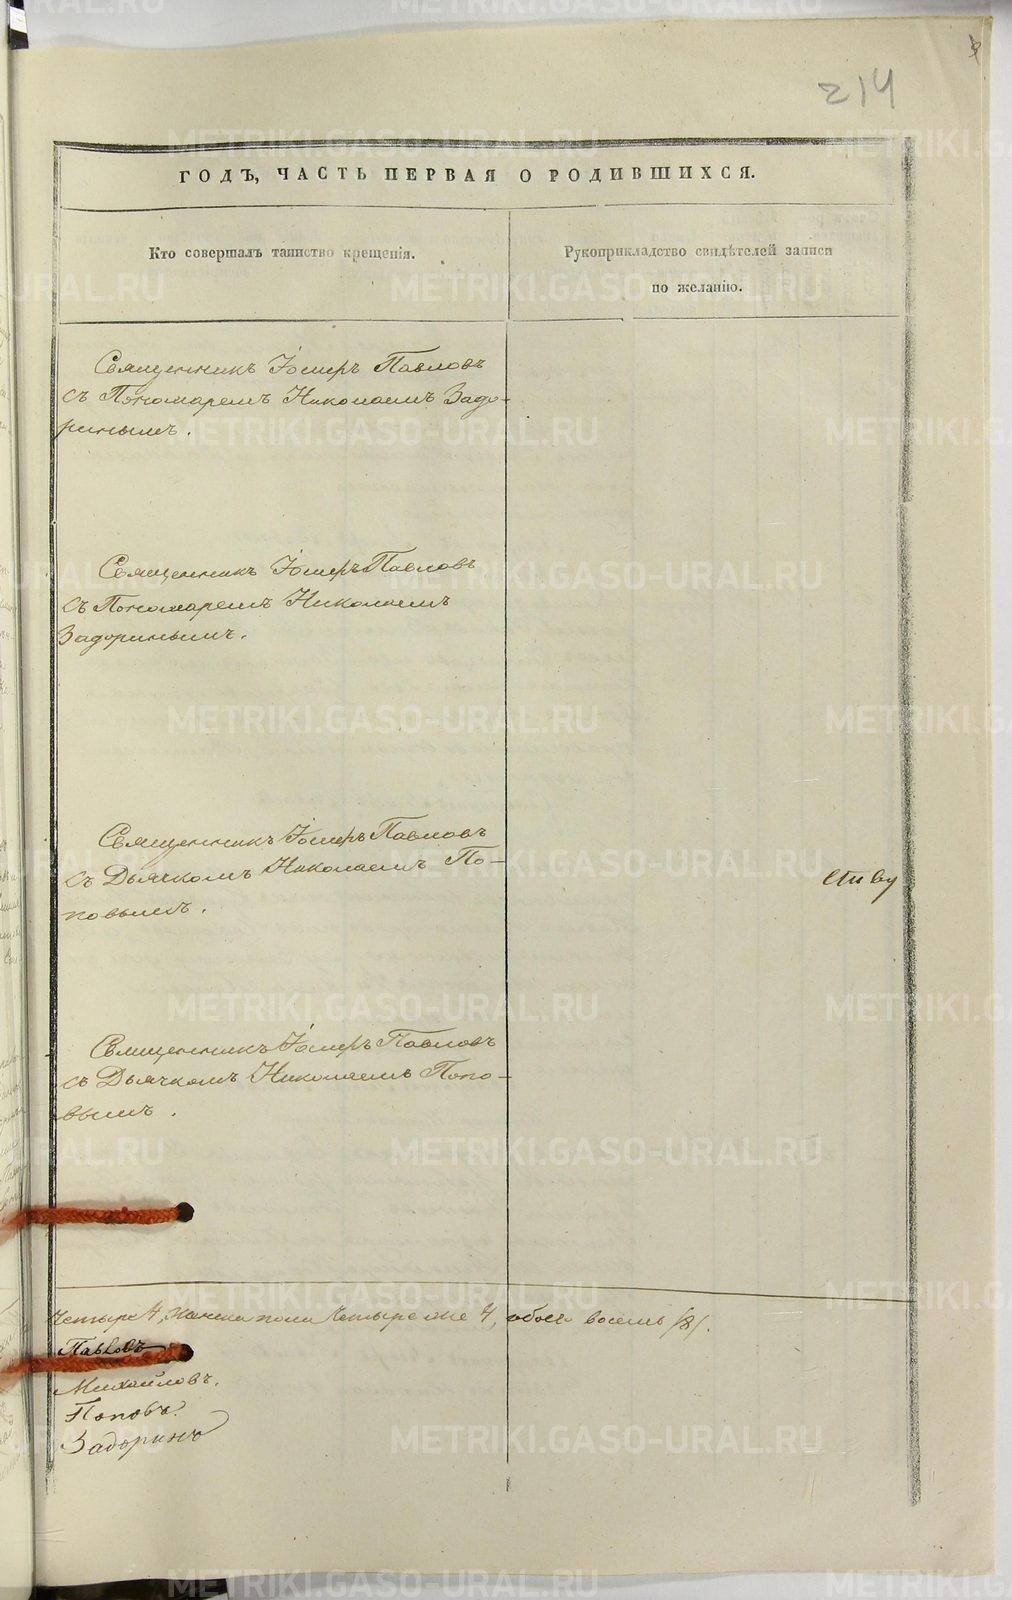 214
ГОДЪ, ЧАСТЬ ПЕРВАЯ О РОДИВШИХСЯ.
Кто совершалъ таинство крещенія.
Рукоприкладство свидѣтелей записи
по желанію.
Священникъ Іосифъ Павловъ
съ Пономаремъ Николаемъ Задо-
ринымъ.
Священникъ Іосифъ Павловъ
съ Пономаремъ Николаемъ
Задоринымъ.
Священникъ Іосифъ Павловъ
съ Дьячкомъ Николаемъ По-
повымъ.
ству
Священникъ Іосифъ Павловъ
съ Дьячкомъ Николаемъ Попо-
вымъ.
Четыре 4, женска пола Четыре же 4, обоего восемь /8/.
Павловъ
Михайловъ.
Поповъ.
Задоринъ
METRIKI.GASO-URAL.RU